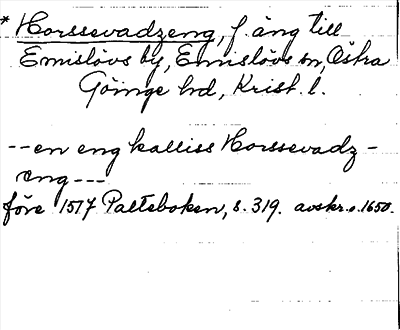 * Horssevadzeng, f. äng till
Emislövs by, Emislövs sn, Östra
Göinge hd, Krist. l.
--en eng kalliss Horssevadz-
eng---
före 1517 Palteboken, s. 319. avskr. o. 1650.